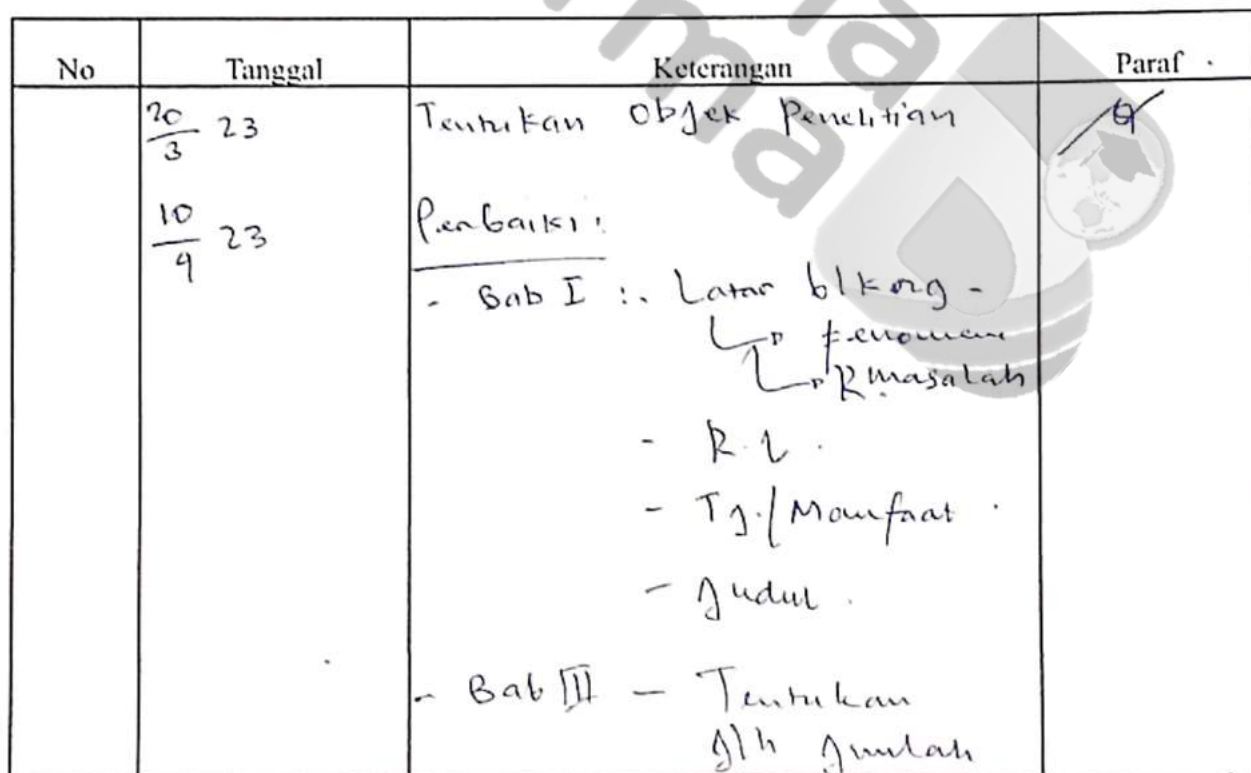 No Tanggal Keterangan Paraf
20/3 23 Tentukan Objek Penelitian
10/4 23 Perbaiki:
- Bab I : Latar blkang -
fenomena
R masalah
- R.
- Tj./Manfaat
- Judul
- Bab III - Tentukan
Jlh Jumlah